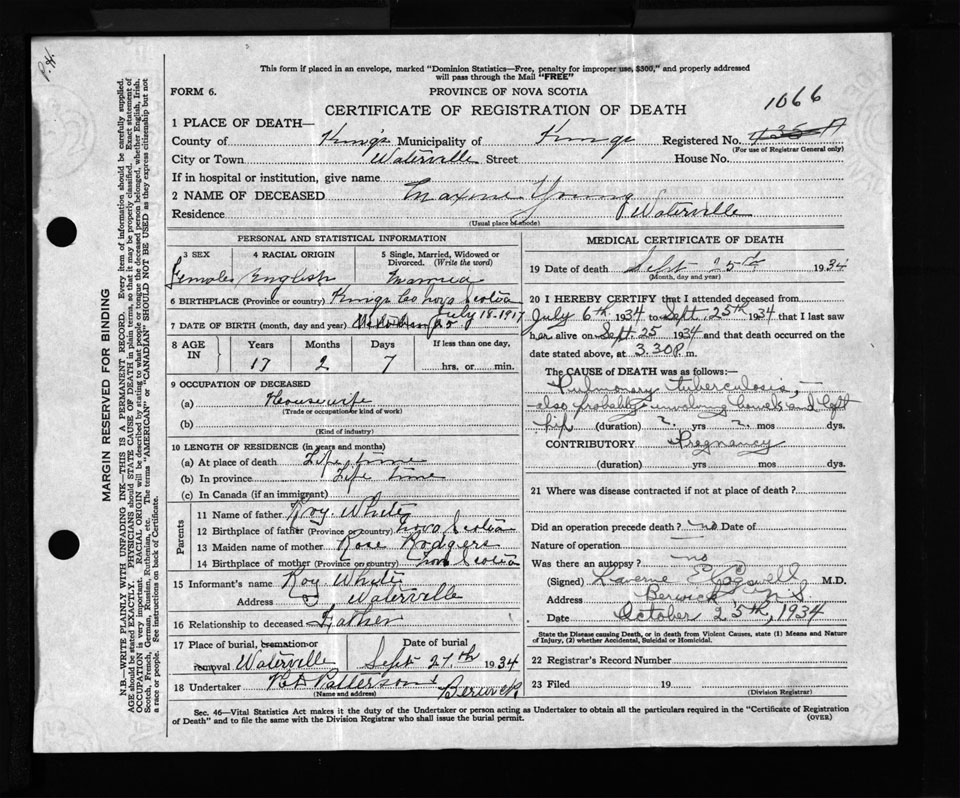 P.H.
This form if placed in an envelope, marked "Dominion Statistics—Free, penalty for improper use, $300," and properly addressed
will pass through the Mail "FREE"
FORM 6. PROVINCE OF NOVA SCOTIA
CERTIFICATE OF REGISTRATION OF DEATH 1066
1 PLACE OF DEATH—
County of King's Municipality of Kings Registered No.
(For use of Registrar General only)
City or Town Waterville Street House No.
If in hospital or institution, give name
2 NAME OF DECEASED Maxine Young
Residence Waterville
(Usual place of abode)
PERSONAL AND STATISTICAL INFORMATION
3 SEX 4 RACIAL ORIGIN 5 Single, Married, Widowed or
Divorced. (Write the word)
Female English Married
6 BIRTHPLACE (Province or country) Kings Co Nova Scotia
July 18-1917
7 DATE OF BIRTH (month, day and year)
8 AGE IN Years Months Days If less than one day,
17 2 7 hrs. or min.
9 OCCUPATION OF DECEASED
(a) Housewife
(Trade or occupation or kind of work)
(b)
(Kind of industry)
10 LENGTH OF RESIDENCE (in years and months)
(a) At place of death Life time
(b) In province Life time
(c) In Canada (if an immigrant)
Parents
11 Name of father Roy White
12 Birthplace of father (Province or country) Nova Scotia
13 Maiden name of mother Rose Rodgers
14 Birthplace of mother (Province or country) Nova Scotia
15 Informant's name Roy White
Address Waterville
16 Relationship to deceased Father
17 Place of burial, cremation or Date of burial
removal Waterville Sept 27.th 1934
18 Undertaker Patterson Berwick
(Name and address)
MEDICAL CERTIFICATE OF DEATH
19 Date of death Sept 25th 1934
(Month, day and year)
20 I HEREBY CERTIFY that I attended deceased from
July 6th 1934 to Sept. 25th 1934 that I last saw
her alive on Sept. 25 1934 and that death occurred on
date stated above, at 3.30 P. m.
The CAUSE of DEATH was as follows:—
Pulmonary tuberculosis,—
also probably involving bowels and left
hip (duration) ? yrs ? mos dys.
CONTRIBUTORY Pregnancy
(duration) yrs mos dys.
21 Where was disease contracted if not at place of death?
Did an operation precede death? no Date of
Nature of operation —
Was there an autopsy? no
(Signed) Laverne E Cogswell M.D.
Address Berwick N S
Date October 25th, 1934
State the Disease causing Death, or in death from Violent Causes, state (1) Means and Nature
of Injury, (2) whether Accidental, Suicidal or Homicidal.
22 Registrar's Record Number
23 Filed 19
(Division Registrar)
Sec. 46—Vital Statistics Act makes it the duty of the Undertaker or person acting as Undertaker to obtain all the particulars required in the "Certificate of Registration
of Death" and to file the same with the Division Registrar who shall issue the burial permit. (OVER)
MARGIN RESERVED FOR BINDING
N.B.—WRITE PLAINLY WITH UNFADING INK—THIS IS A PERMANENT RECORD. Every item of information should be carefully supplied.
AGE should be stated EXACTLY. PHYSICIANS should STATE CAUSE OF DEATH in plain terms, so that it may be properly classified. Exact statement of
OCCUPATION is very important. RACIAL ORIGIN will be described by stating to what people or tongue the deceased person belonged, whether English, Irish,
Scotch, French, German, Russian, Ruthenian, etc. The terms "AMERICAN" or "CANADIAN" SHOULD NOT BE USED as they express citizenship but not
a race or people. See instructions on back of Certificate.